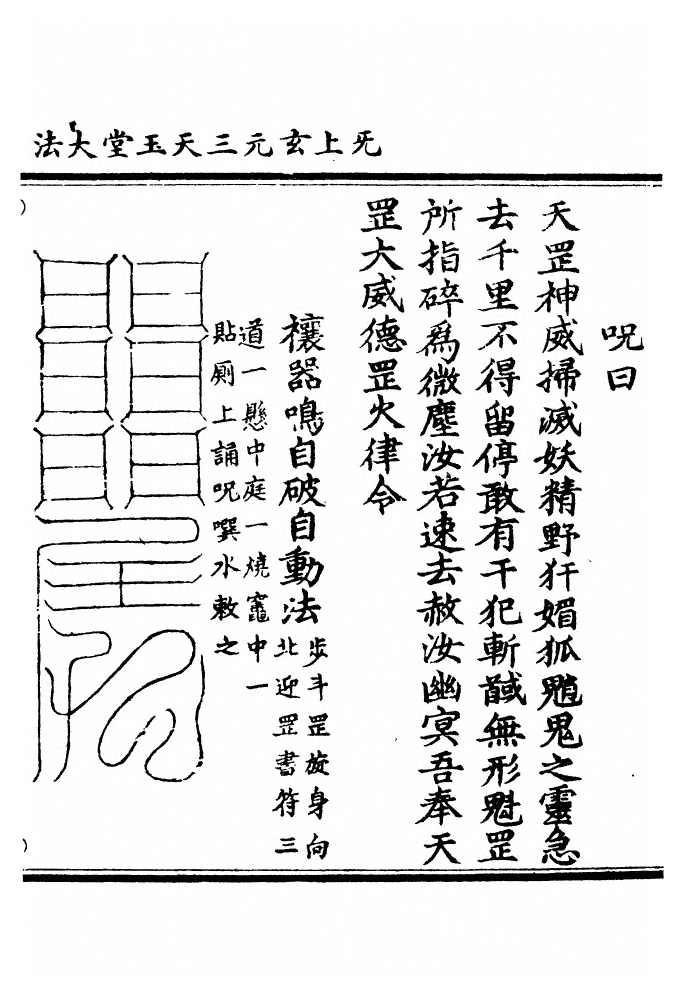 旡上玄元三天玉堂大法
呪曰
天罡神威掃滅妖精野犴媚狐魈鬼之靈急
去千里不得留停敢有干犯斬馘無形魁罡
所指碎爲微塵汝若速去赦汝幽冥吾奉天
罡大威德罡火律令
禳器鳴自破自動法
步斗罡旋身向
北迎罡書符三
道一懸中庭一燒竈中一
貼厠上誦呪噀水敕之